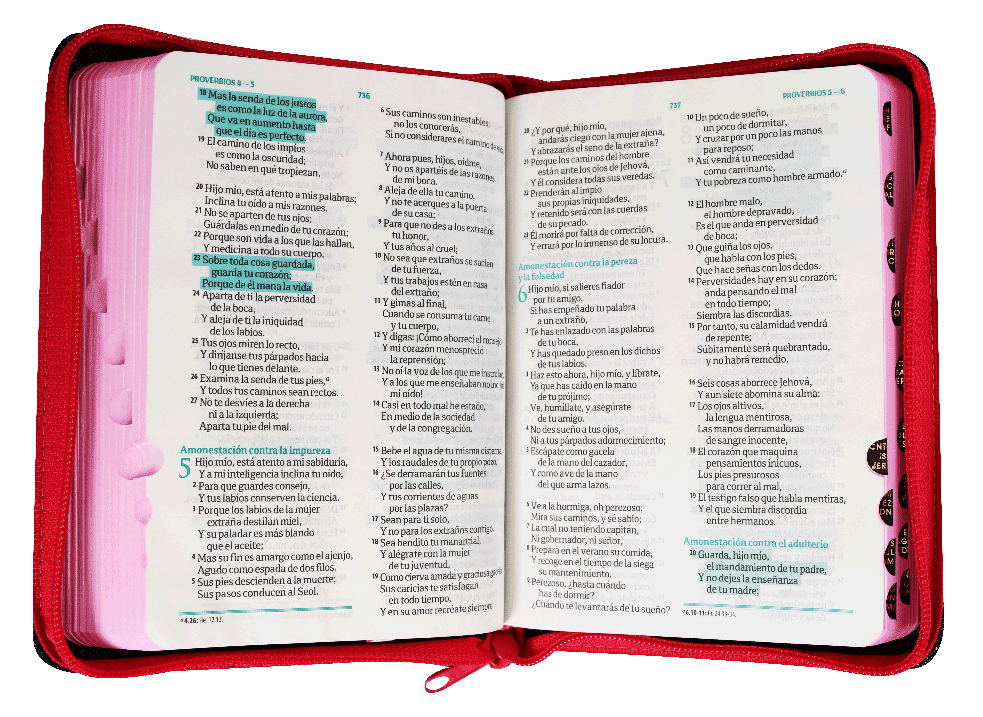 PROVERBIOS 4—5
736
18 Mas la senda de los justos
es como la luz de la aurora,
Que va en aumento hasta
que el día es perfecto.
19 El camino de los impíos
es como la oscuridad;
No saben en qué tropiezan.
20 Hijo mío, está atento a mis palabras;
Inclina tu oído a mis razones.
21 No se aparten de tus ojos;
Guárdalas en medio de tu corazón;
22 Porque son vida a los que las hallan,
Y medicina a todo su cuerpo.
23 Sobre toda cosa guardada,
guarda tu corazón;
Porque de él mana la vida.
24 Aparta de ti la perversidad
de la boca,
Y aleja de ti la iniquidad
de los labios.
25 Tus ojos miren lo recto,
Y diríjanse tus párpados hacia
lo que tienes delante.
26 Examina la senda de tus pies,a
Y todos tus caminos sean rectos.
27 No te desvíes a la derecha
ni a la izquierda;
Aparta tu pie del mal.
Amonestación contra la impureza
5 Hijo mío, está atento a mi sabiduría,
Y a mi inteligencia inclina tu oído,
2 Para que guardes consejo,
Y tus labios conserven la ciencia.
3 Porque los labios de la mujer
extraña destilan miel,
Y su paladar es más blando
que el aceite;
4 Mas su fin es amargo como el ajenjo,
Agudo como espada de dos filos.
5 Sus pies descienden a la muerte;
Sus pasos conducen al Seol.
a 4.26: He. 12.13.
6 Sus caminos son inestables;
no los conocerás,
Si no considerares el camino de vida.
7 Ahora pues, hijos, oídme,
Y no os apartéis de las razones
de mi boca.
8 Aleja de ella tu camino,
Y no te acerques a la puerta
de su casa;
9 Para que no des a los extraños
tu honor,
Y tus años al cruel;
10 No sea que extraños se sacien
de tu fuerza,
Y tus trabajos estén en casa
del extraño;
11 Y gimas al final,
Cuando se consuma tu carne
y tu cuerpo,
12 Y digas: ¡Cómo aborrecí el consejo,
Y mi corazón menospreció
la reprensión;
13 No oí la voz de los que me instruían,
Y a los que me enseñaban no incliné
mi oído!
14 Casi en todo mal he estado,
En medio de la sociedad
y de la congregación.
15 Bebe el agua de tu misma cisterna,
Y los raudales de tu propio pozo.
16 ¿Se derramarán tus fuentes
por las calles,
Y tus corrientes de aguas
por las plazas?
17 Sean para ti solo,
Y no para los extraños contigo.
18 Sea bendito tu manantial,
Y alégrate con la mujer
de tu juventud,
19 Como cierva amada y graciosa gacela
Sus caricias te satisfagan
en todo tiempo,
Y en su amor recréate siempre.
737
PROVERBIOS 5—6
20 ¿Y por qué, hijo mío,
andarás ciego con la mujer ajena,
Y abrazarás el seno de la extraña?
21 Porque los caminos del hombre
están ante los ojos de Jehová,
Y él considera todas sus veredas.
22 Prenderán al impío
sus propias iniquidades,
Y retenido será con las cuerdas
de su pecado.
23 Él morirá por falta de corrección,
Y errará por lo inmenso de su locura.
Amonestación contra la pereza
y la falsedad
6 Hijo mío, si salieres fiador
por tu amigo,
Si has empeñado tu palabra
a un extraño,
2 Te has enlazado con las palabras
de tu boca,
Y has quedado preso en los dichos
de tus labios.
3 Haz esto ahora, hijo mío, y líbrate,
Ya que has caído en la mano
de tu prójimo;
Ve, humíllate, y asegúrate
de tu amigo.
4 No des sueño a tus ojos,
Ni a tus párpados adormecimiento;
5 Escápate como gacela
de la mano del cazador,
Y como ave de la mano
del que arma lazos.
6 Ve a la hormiga, oh perezoso,
Mira sus caminos, y sé sabio;
7 La cual no teniendo capitán,
Ni gobernador, ni señor,
8 Prepara en el verano su comida,
Y recoge en el tiempo de la siega
su mantenimiento.
9 Perezoso, ¿hasta cuándo
has de dormir?
¿Cuándo te levantarás de tu sueño?
10 Un poco de sueño,
un poco de dormitar,
Y cruzar por un poco las manos
para reposo;
11 Así vendrá tu necesidad
como caminante,
Y tu pobreza como hombre armado.a
12 El hombre malo,
el hombre depravado,
Es el que anda en perversidad
de boca;
13 Que guiña los ojos,
que habla con los pies,
Que hace señas con los dedos.
14 Perversidades hay en su corazón;
anda pensando el mal
en todo tiempo;
Siembra las discordias.
15 Por tanto, su calamidad vendrá
de repente;
Súbitamente será quebrantado,
y no habrá remedio.
16 Seis cosas aborrece Jehová,
Y aun siete abomina su alma:
17 Los ojos altivos,
la lengua mentirosa,
Las manos derramadoras
de sangre inocente,
18 El corazón que maquina
pensamientos inicuos,
Los pies presurosos
para correr al mal,
19 El testigo falso que habla mentiras,
Y el que siembra discordia
entre hermanos.
Amonestación contra el adulterio
20 Guarda, hijo mío,
el mandamiento de tu padre,
Y no dejes la enseñanza
de tu madre;
a 6.10-11: Pr. 24.33-34.